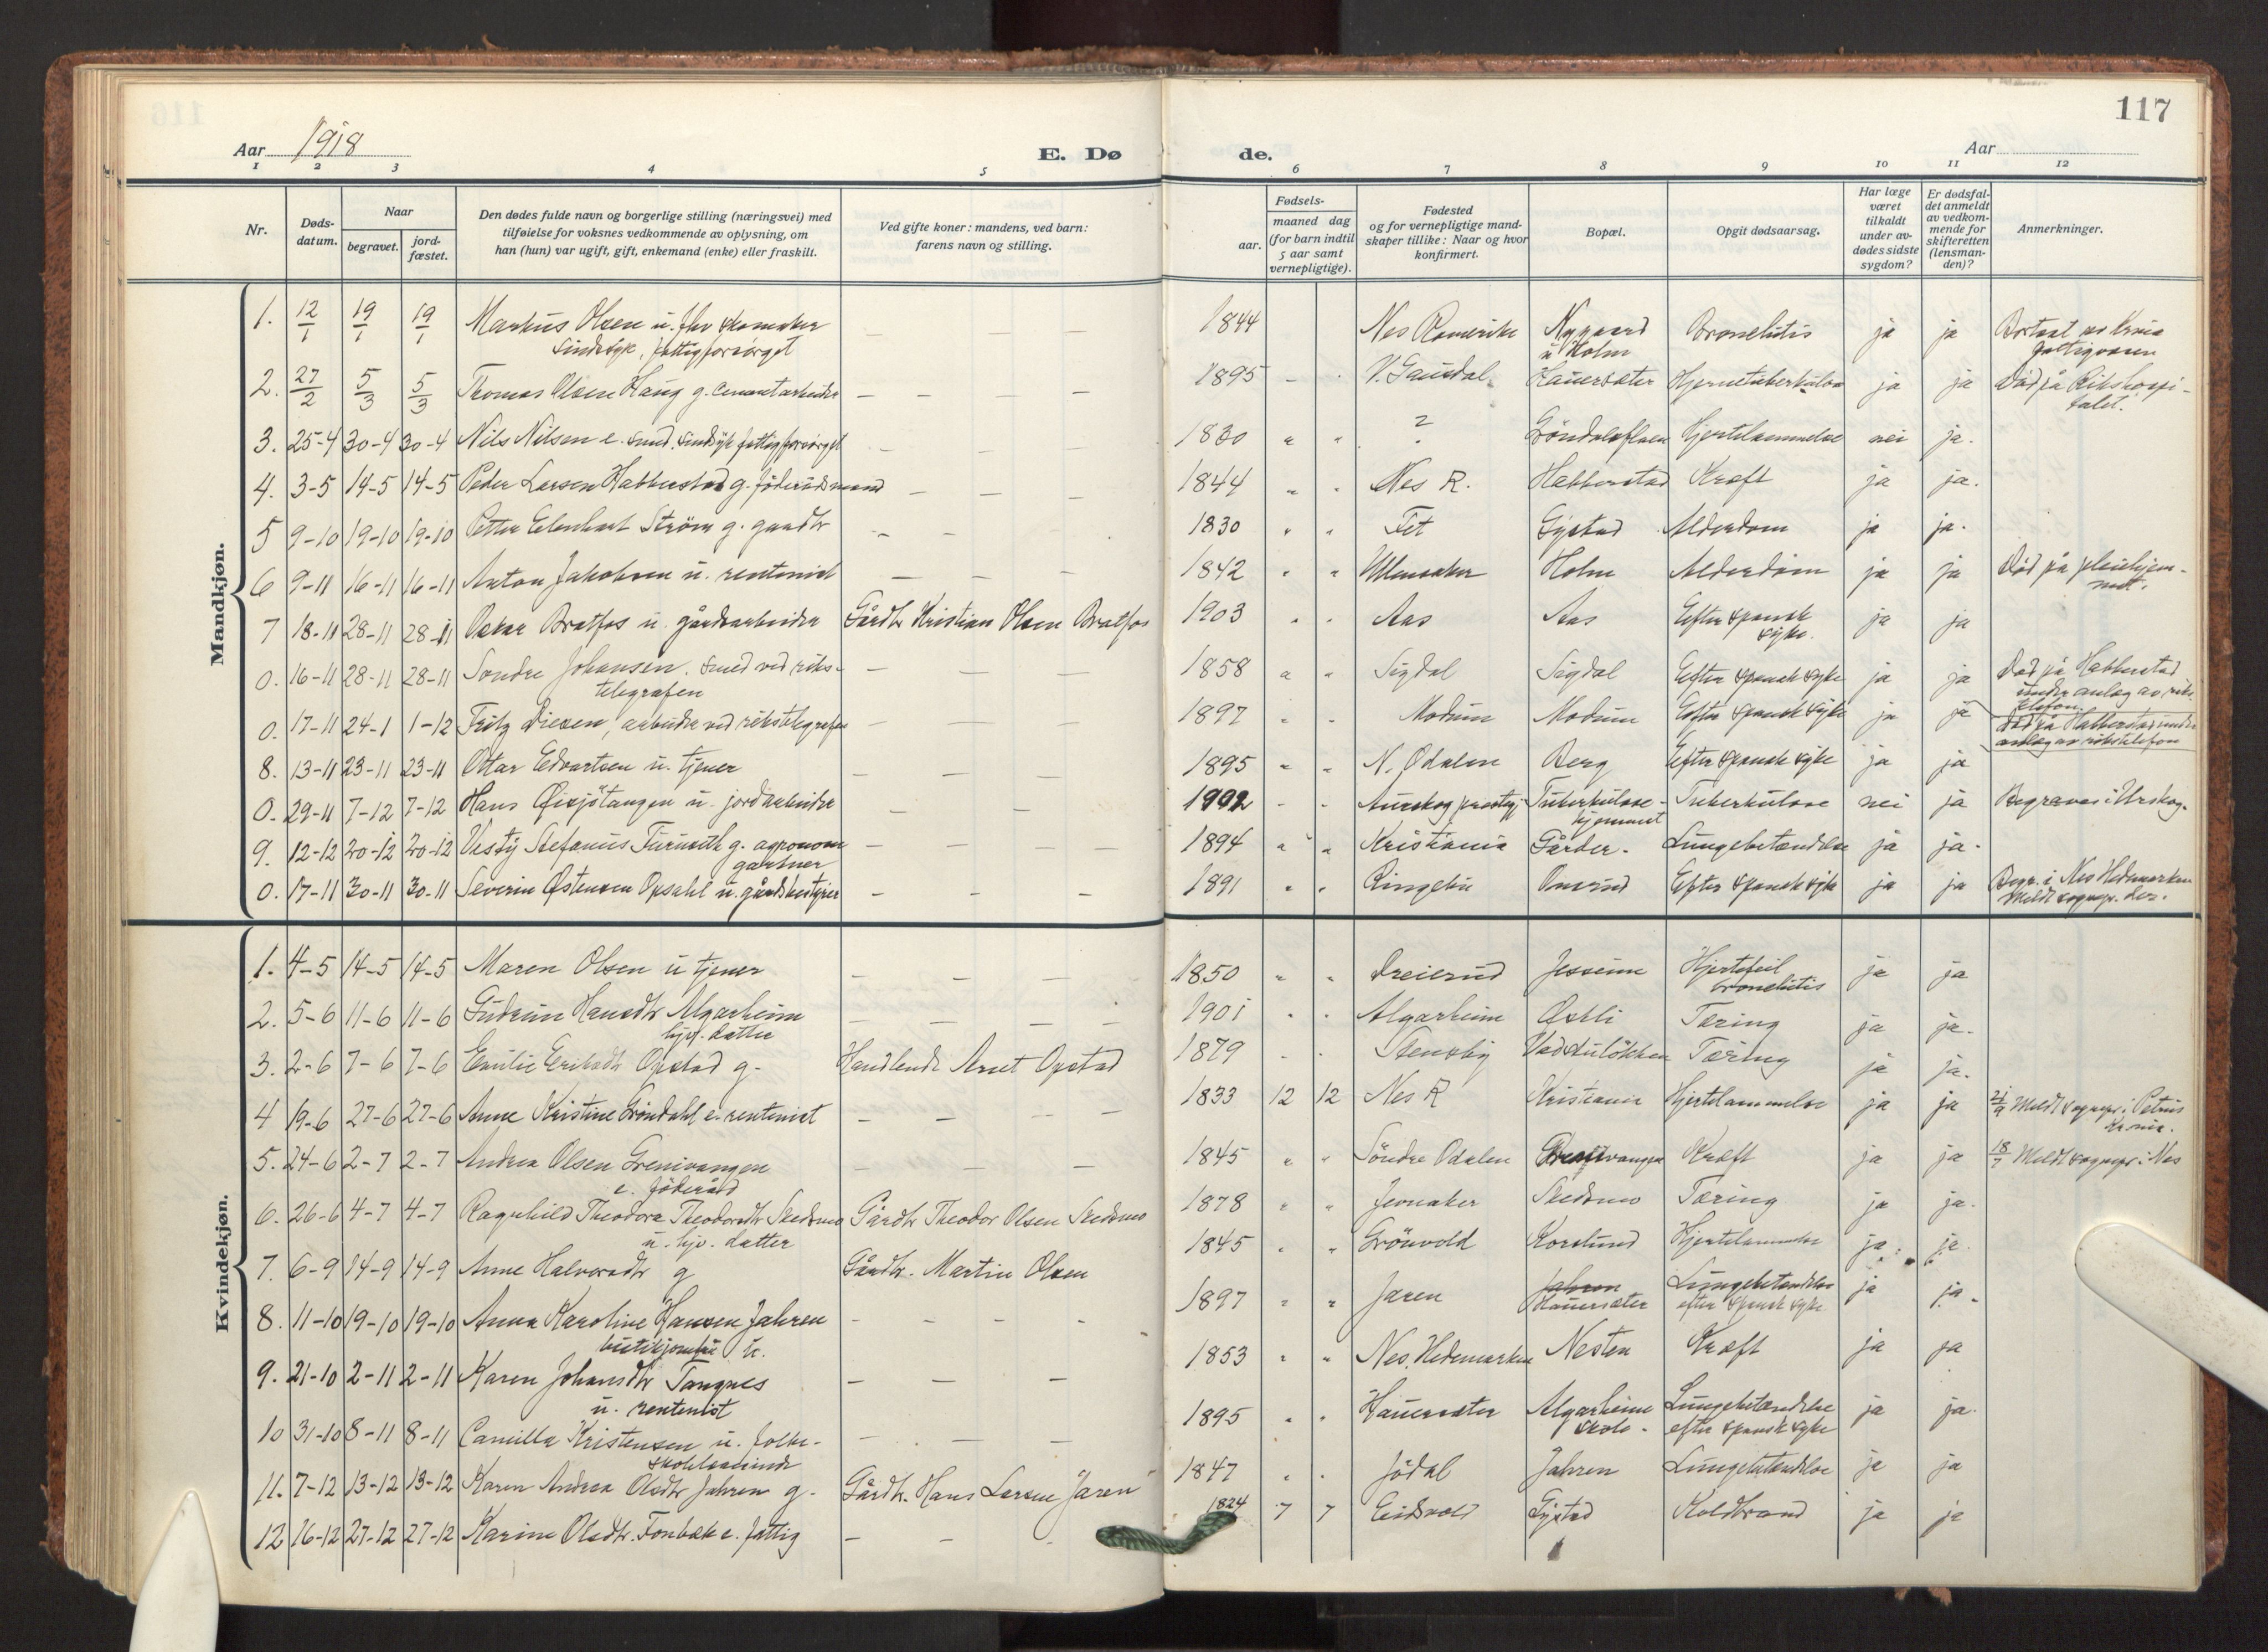 117
Aar 1918
E. Dø
de.
Aar
1 2 3 4 5 6 7 8 9 10 11 12
Nr.
Døds-
datum.
Naar
begravet.
jord-
fæstet.
Den dødes fulde navn og borgerlige stilling (næringsvei) med
tilføielse for voksnes vedkommende av oplysning, om
han (hun) var ugift, gift, enkemand (enke) eller fraskilt.
Ved gifte koner: mandens, ved barn:
farens navn og stilling.
Fødsels-
aar.
maaned dag
(for barn indtil
5 aar samt
vernepligtige).
Fødested
og for vernepligtige mand-
skaper tillike: Naar og hvor
konfirmert.
Bopæl.
Opgit dødsaarsag.
Har læge
været
tilkaldt
under av-
dødes sidste
sygdom?
Er dødsfal-
det anmeldt
av vedkom-
mende for
skifteretten
(lensman-
den)?
Anmerkninger.
Mandkjøn.
1. 12/1 19/1 19/1 Markus Olsen u. fhv skomaker — — — 1844 Nes Romerike Nygaard Bronchitis ja ja Bortsat av Krnia
sindssyk, fattigforsørget u Holm fattigvæsen
2. 27/2 5/3 5/3 Thomas Olsen Haug g. Cementarbeider — — — — 1895 V. Gausdal Hauersæter Hjernetuberkulose ja ja Død på Rikshospi-
talet.
3. 25-4 30-4 30-4 Nils Nilsen e. smed. sindsyk fattigforsørget — — — 1830 " " ? Gröndalsflaen Hjertelammelse nei ja.
4. 3-5 14-5 14-5 Peder Larsen Habberstad g. föderådsmand — — — 1844 " " Nes R. Habberstad Kræft ja ja.
5 9-10 19-10 19-10 Petter Edenhart Ström g. gaardbr — — — 1830 " " Fet Gystad Alderdom ja ja.
6 9-11 16-11 16-11 Anton Jakobsen u. rentenist — — — 1842 " " Ullensaker Holm Alderdom ja ja Död på pleiehjem-
met.
7 18-11 28-11 28-11 Oskar Bratfos u. gårdsarbeider Gårdbr Kristian Olsen Bratfos 1903 " " Aas Aas Efter spansk ja ja
syke.
0. 16-11 28-11 28-11 Sondre Johansen. smed ved riks- — — — 1858 " " Sigdal Sigdal Efter spansk syke ja ja Död på Habberstad
telegrafen under anlæg av riks-
telefon.
0. 17-11 24-1 1-12 Fritz Diesen, arbeider ved rikstelegrafen — — — 1897 " " Modum Modum Efter spansk syke ja ja Död på Habberstad under
anlæg av rikstelefon
8. 13-11 23-11 23-11 Ottar Edvartsen u. tjener — — — 1895 " " N. Odalen Berg Efter spansk syke ja ja
0. 29-11 7-12 7-12 Hans Øisjötangen u. jordarbeider — — — 1902 " " Aurskog prestegj. Tuberkulose- Tuberkulose nei ja Begraves i Urskog.
hjemmet
9. 12-12 20-12 20-12 Stefanus Furuseth g. agronom — — — — 1894 " " Kristiania Gårder. Lungebetændelse ja ja.
gartner
0. 17-11 30-11 30-11 Severin Østensen Opsahl u. gårdsbestyrer — — — 1891 " " Ringebu Onsrud Efter spansk syke ja ja Begr. i Nes Hedemarken
Meldt sognepr. der.
Kvindekjøn.
1. 4-5 14-5 14-5 Maren Olsen u tjener — — — 1850 " " Dreierud Jessum Hjertefeil ja ja
bronchitis
2. 5-6 11-6 11-6 Gudrun Hansdtr Algarheim — — — — 1901 " " Algarheim Østli Tæring ja ja.
hjv. datter
3. 2-6 7-6 7-6 Emilie Eriksdtr Opstad g. Handlende Opstad 1879 " " Stensby Tæring ja ja.
4 19-6 27-6 27-6 Anne Kristine Gröndahl e. rentenist — — — — 1833 12 12 Nes R Kristiania Hjertelammelse ja ja 21/9 Meldt sognepr. i Petrus
Krnia.
5. 24-6 2-7 2-7 Andrea Olsen Grenivangen — — — 1845 " " Söndre Odalen Grenivangen Kræft ja ja 18/7 Meldt sognepr. i Nes
e. föderåd
6. 26-6 4-7 4-7 Ragnhild Theodora Theodorsdtr Skedsmo Gårdbr Theodor Olsen Skedsmo 1878 " " Jevnaker Skedsmo Tæring ja ja.
u. hjv. datter
7. 6-9 14-9 14-9 Anne Halvorsdtr g Gårdbr. Martin Olsen 1845 " " Grönvold Korslund Hjertelammelse ja. ja.
8. 11-10 19-10 19-10 Anna Karoline Hansen Jahren — — — — 1897 " " Jaren Jahren Lungebetændelse ja ja.
butikjomfru u. Hauersæter efter spansk syke
9. 21-10 2-11 2-11 Karen Johansdtr Tangnes — — — 1853 " " Nes. Hedemarken Nesten Kræft ja ja
u. rentenist
10 31-10 8-11 8-11 Camilla Kristensen u. folke- — — — 1895 " " Hauersæter Algarheim Lungebetændelse ja ja.
skolelærerinde skole. efter spansk syke
11. 7-12 13-12 13-12 Karen Andrea Olsdtr Jahren g. Gårdbr. Hans Larsen Jaren 1847 " " Jödal Jahren Lungebetændelse ja ja
12 16-12 27-12 27-12 Karine Olsdtr. Fonbæk e. fattig — — — 1824 7 7 Eidsvold Gystad Koldbrand ja ja